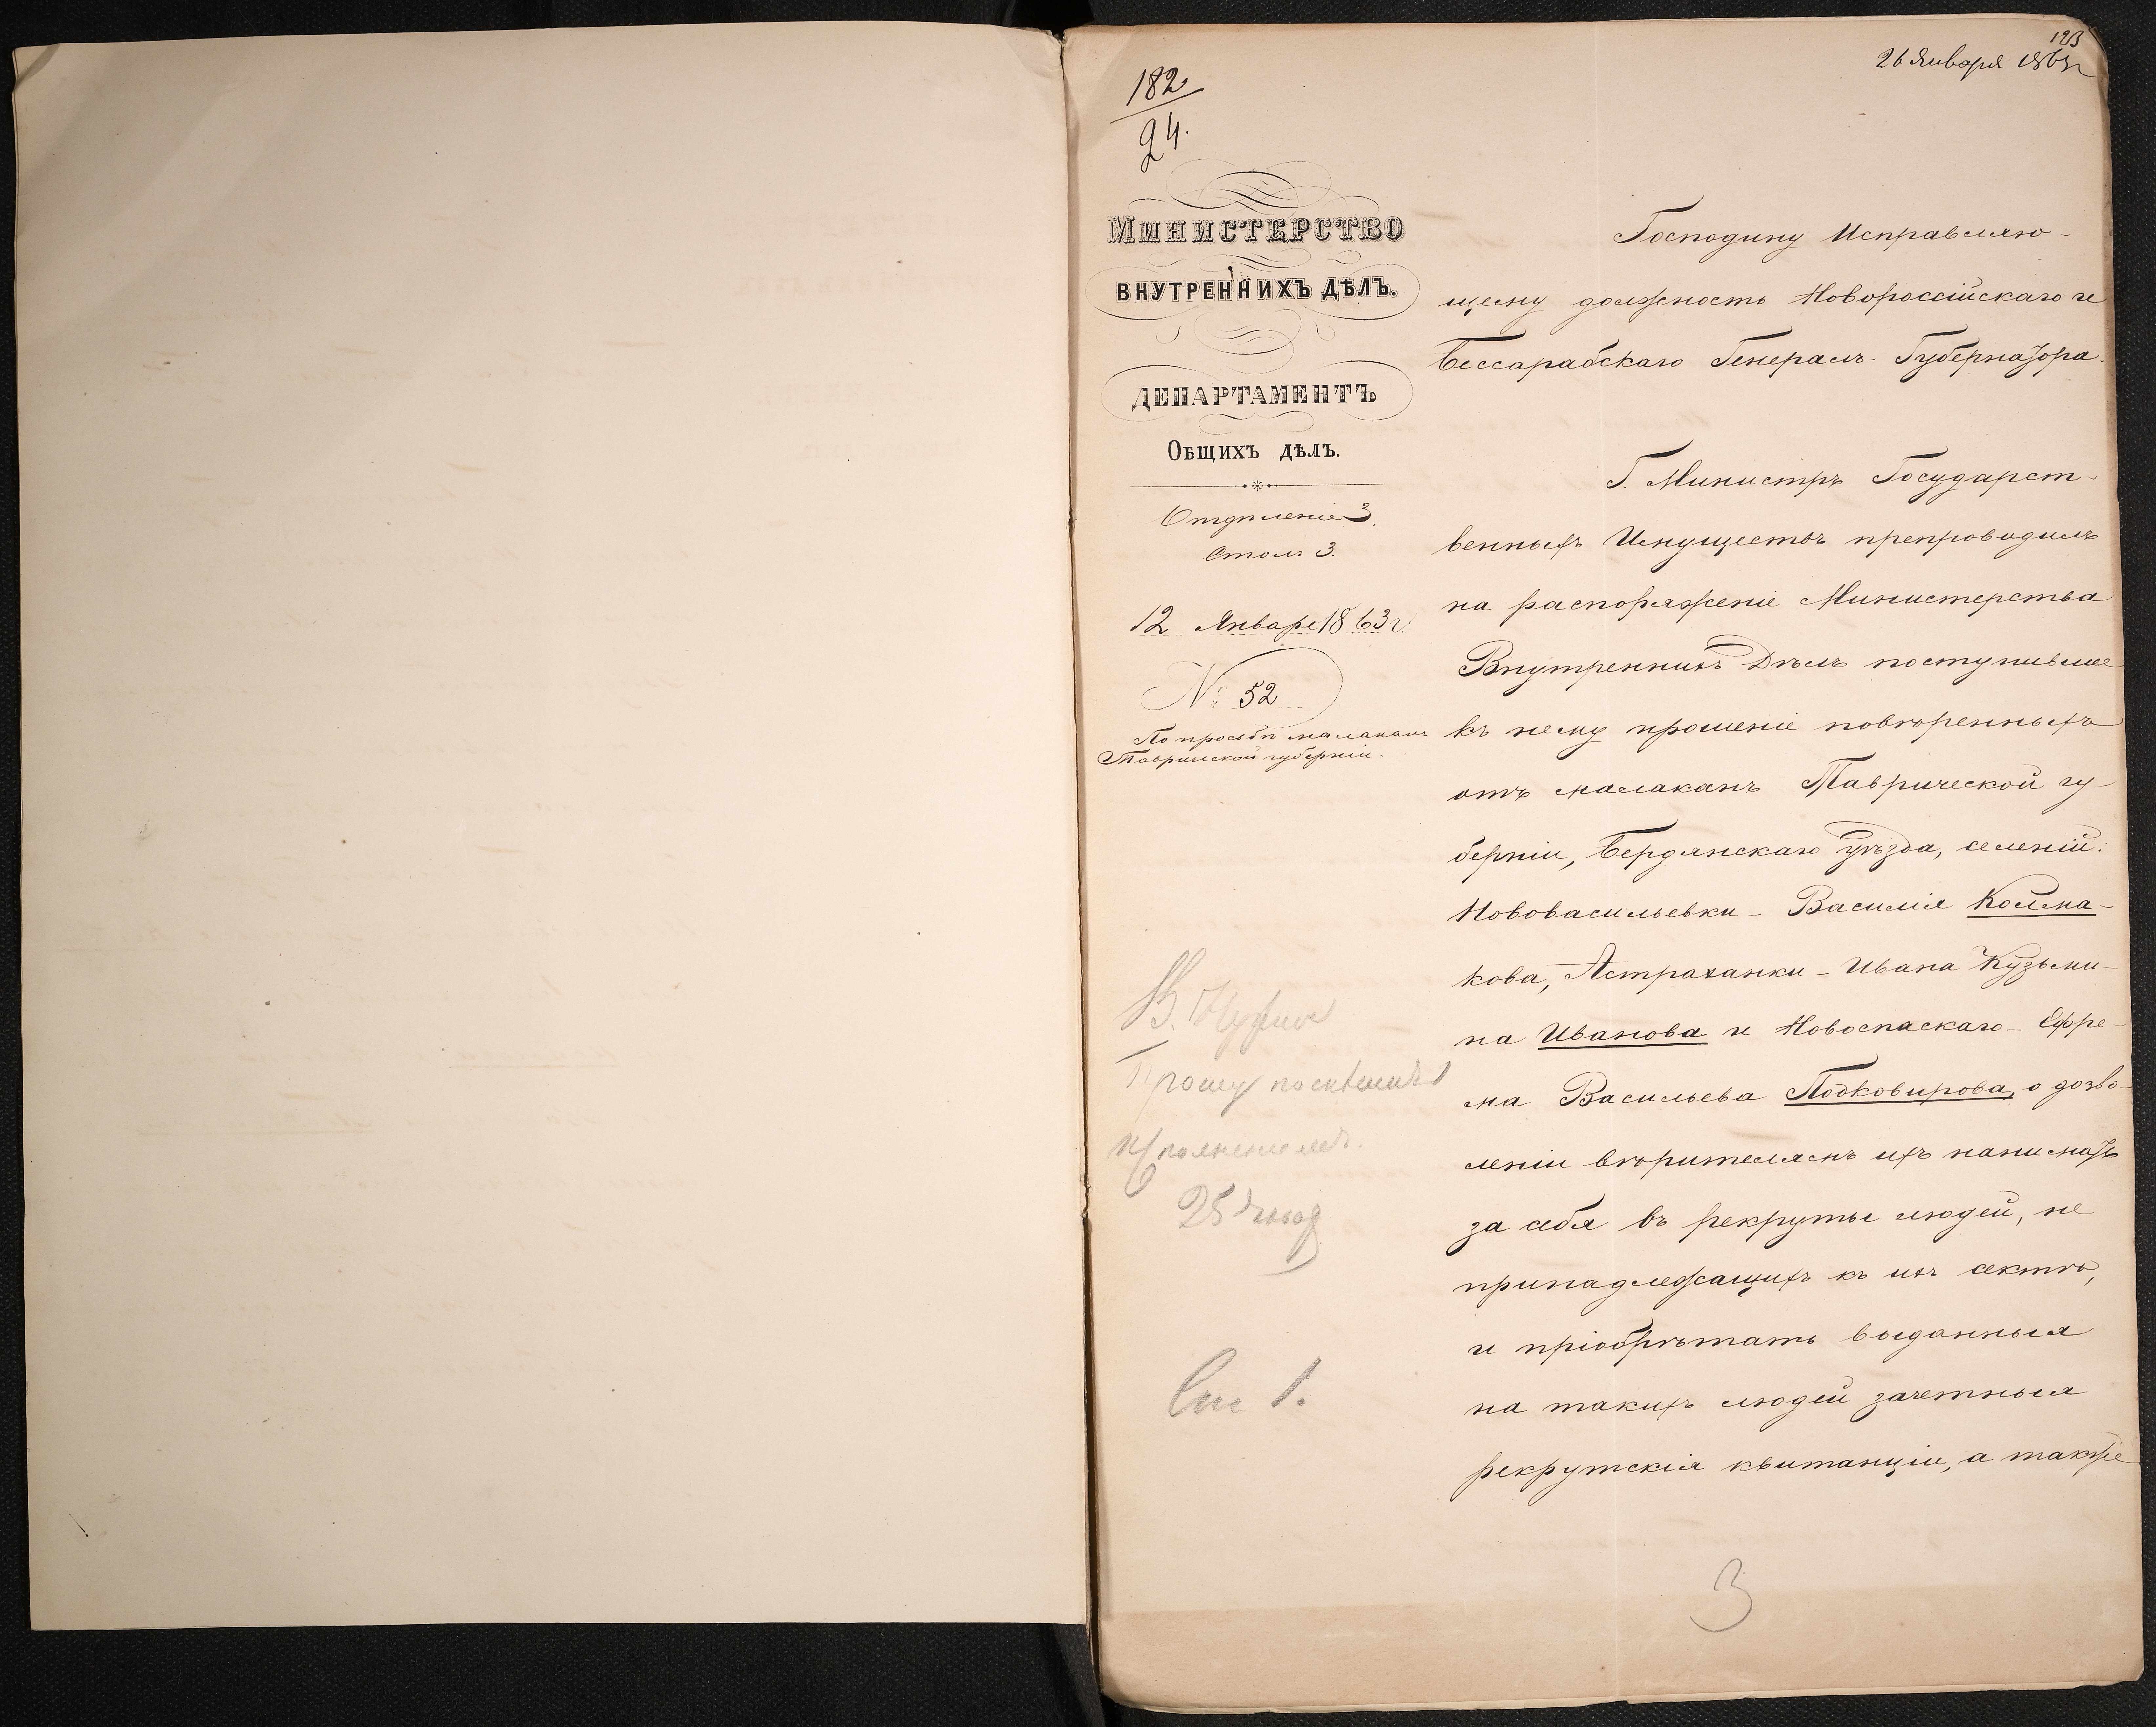 123
26 Января 1863 г
182
24.
Министерство
внутреннихъ дѣлъ.
Департаментъ
Общихъ дѣлъ.
Отдѣленіе 3.
Столъ 3.
12 Января 1863 г.
№ 52
По просьбѣ малаканъ
Таврической губерніи.
Господину Исправляю-
щему должность Новороссійскаго и
Бессарабскаго Генералъ-Губернатора.
Г. Министръ Государст-
венныхъ Имуществъ препроводилъ
на распоряженіе Министерства
Внутреннихъ Дѣлъ поступившее
къ нему прошеніе повѣренныхъ
отъ малаканъ Таврической гу-
берніи, Бердянскаго уѣзда, селеній:
Нововасильевки - Василія Колма-
кова, Астраханки - Ивана Кузьми-
на Иванова и Новоспаскаго - Ефре-
ма Васильева Подковырова, о дозво-
леніи вѣрителямъ ихъ нанимать
за себя въ рекруты людей, не
принадлежащихъ къ ихъ сектѣ,
и пріобрѣтать выданныя
на такихъ людей зачетныя
рекрутскія квитанціи, а также
Прошу поспѣшить
исполненіемъ.
Ст 1.
3